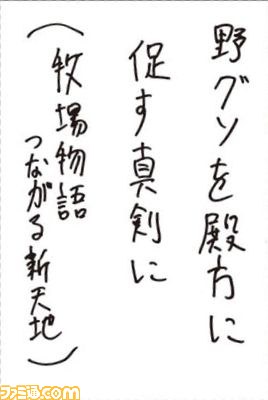 野グソを殿方に
促す真剣に
（牧場物語
つながる新天地）
ファミ通.com